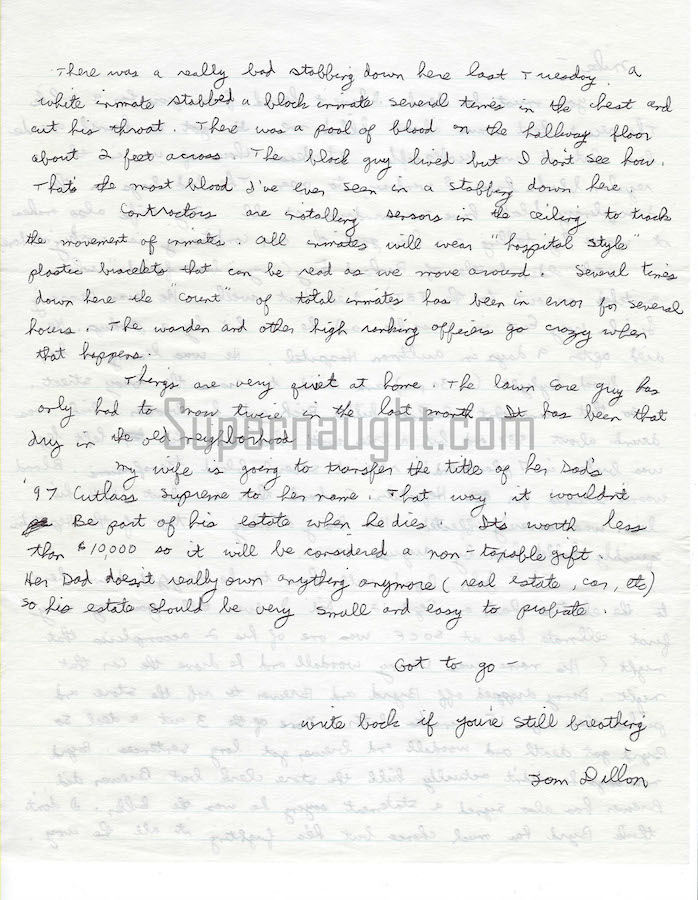 There was a really bad stabbing down here last Tuesday. A
white inmate stabbed a black inmate several times in the chest and
cut his throat. There was a pool of blood on the hallway floor
about 2 feet across. The black guy lived but I don't see how.
That's the most blood I've ever seen in a stabbing down here.
Contractors are installing sensors in the ceiling to track
the movement of inmates. All inmates will wear "hospital style"
plastic bracelets that can be read as we move around. Several times
down here the "count" of total inmates has been in error for several
hours. The warden and other high ranking officers go crazy when
that happens.
Things are very quiet at home. The lawn care guy has
only had to mow twice in the last month. It has been that
dry in the old neighborhood.
Supernaught.com
My wife is going to transfer the title of her Dad's
'97 Cutlass Supreme to her name. That way it wouldn't
Be part of his estate when he dies. It's worth less
than $10,000 so it will be considered a non-taxable gift.
Her Dad doesn't really own anything anymore (real estate, car, etc)
so his estate should be very small and easy to probate.
Got to go -
write back if you're still breathing
Tom Dillon